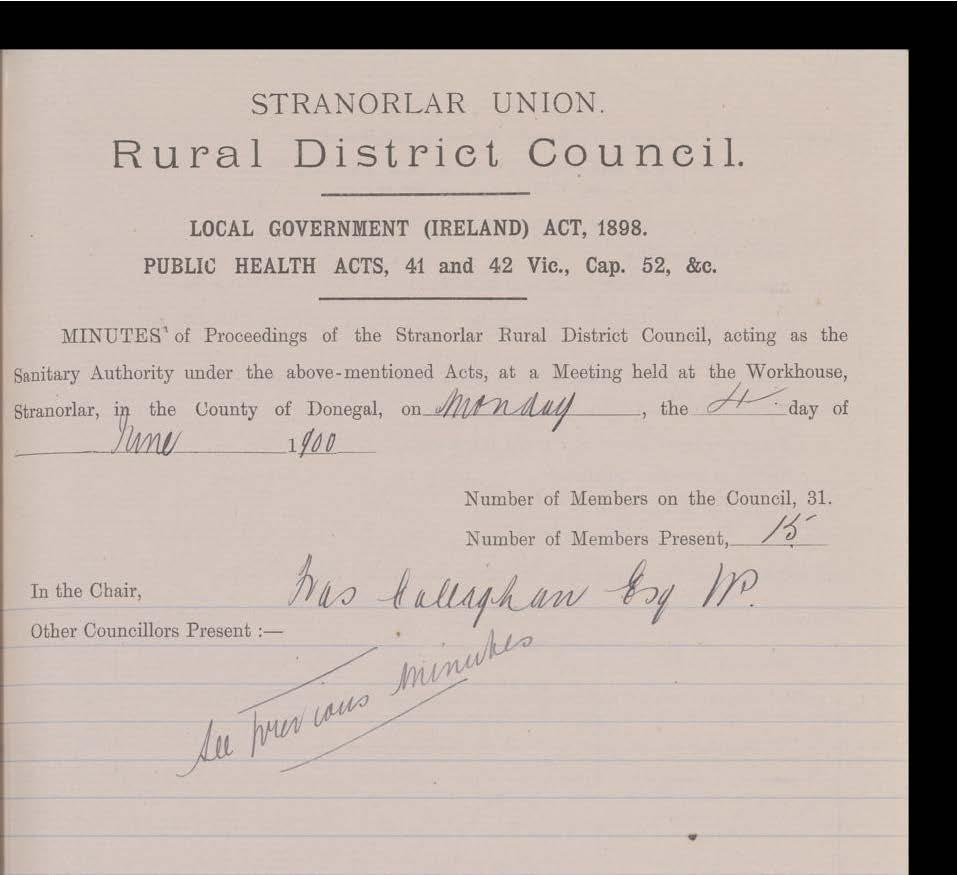 STRANORLAR UNION.
Rural District Council.
LOCAL GOVERNMENT (IRELAND) ACT, 1898.
PUBLIC HEALTH ACTS, 41 and 42 Vic., Cap. 52, &c.
MINUTES of Proceedings of the Stranorlar Rural District Council, acting as the
Sanitary Authority under the above-mentioned Acts, at a Meeting held at the Workhouse,
Stranorlar, in the County of Donegal, on Monday, the 4 day of
June 1900
Number of Members on the Council, 31.
Number of Members Present, 15
In the Chair, Callaghan Esq
Other Councillors Present :—
See previous minutes